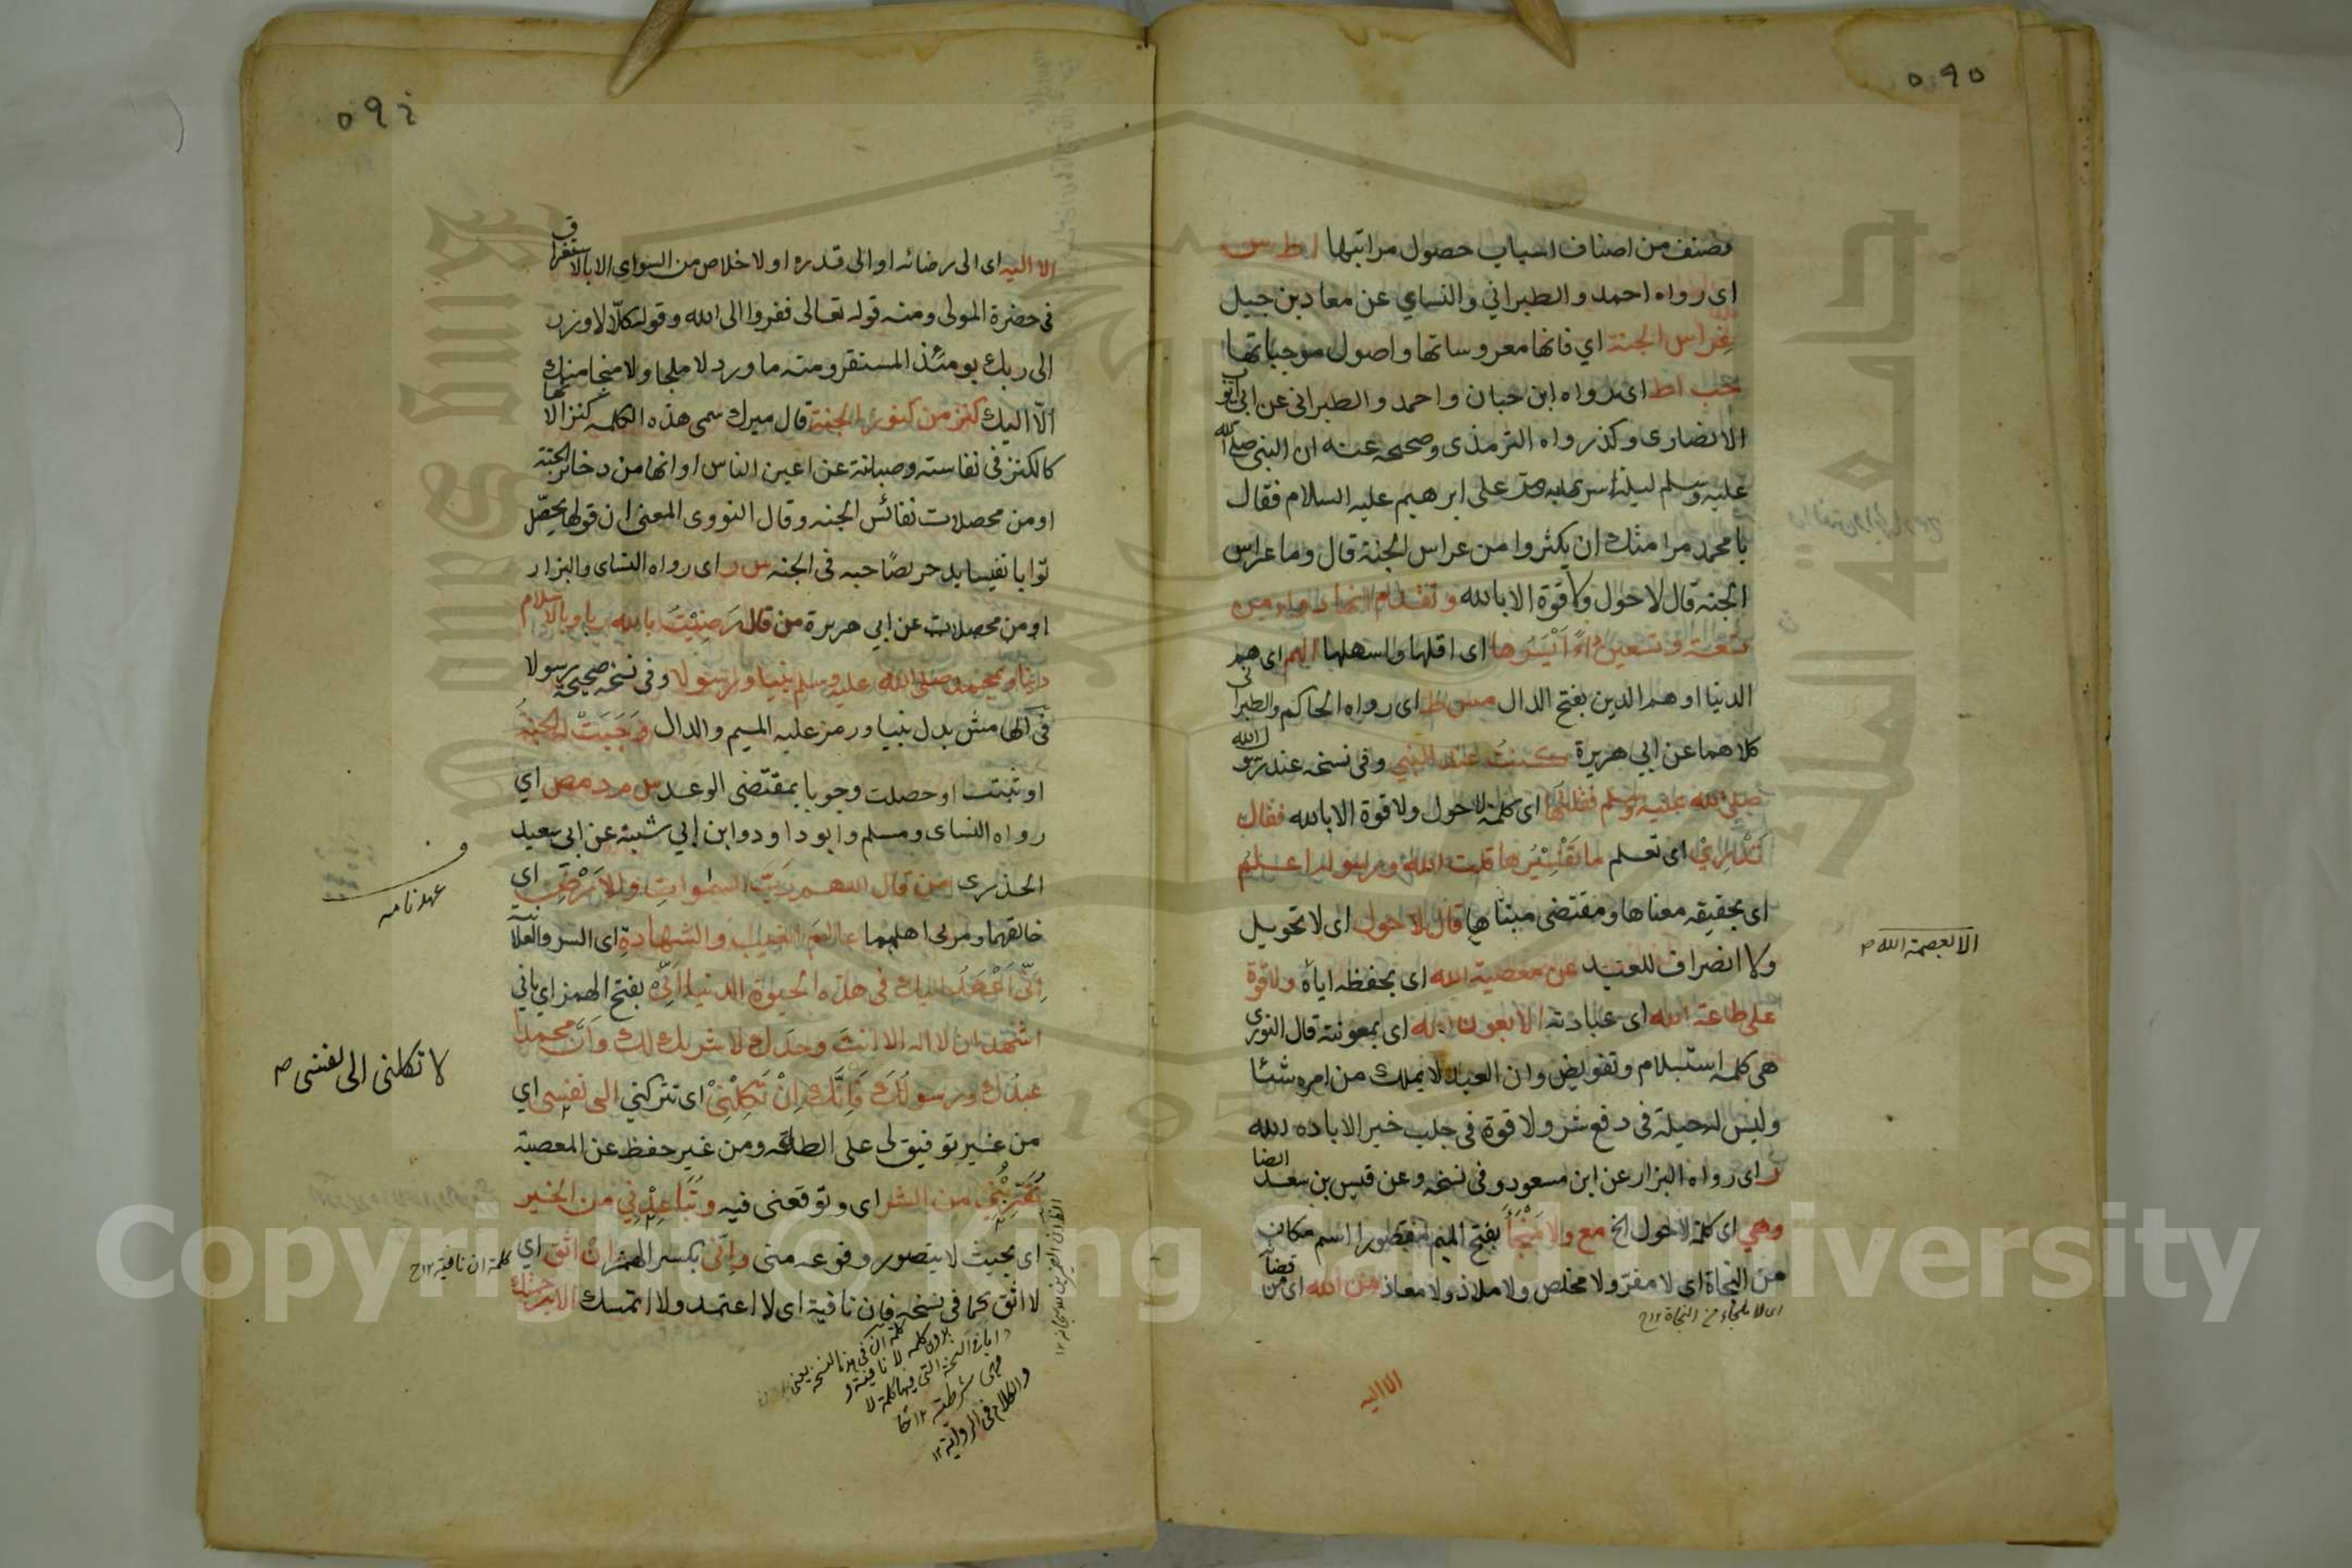 ٥٩٥
وصنف من اصناف اسباب حصول مراتبها ا ط س
اى رواه احمد والطبراني والنساي عن معاذ بن جبل
غراس الجنة اي فانها مغروساتها واصول موجباتها
حب اط اى رواه ابن حبان واحمد والطبرانى عن ابى ايوب
الانصارى وكذر رواه الترمذى وصححه عنه ان النبى صلى الله
عليه وسلم ليلة اسرى به مر على ابرهيم عليه السلام فقال
يا محمد مر امتك ان يكثروا من غراس الجنة قال وما غراس
الجنه قال لا حول ولا قوة الا بالله وتقدم انها دواء من
تسعة وتسعين داءً اَيْسَرُها اى اقلها واسهلها الهم اى هم
الدنيا او هم الدين بفتح الدال مس ط اى رواه الحاكم والطبرانى
كلاهما عن ابي هريرة كنتُ عند النبي وفى نسخه عند رسول الله
صلى الله عليه وسلم فقلتها اى كلمة لا حول ولا قوة الا بالله فقال
تَدْرِيْ اى تعلم ما تَفْسِيْرُها قلت الله ورسوله اعلم
اى بحقيقه معناها ومقتضى مبناها قال لا حول اى لا تحويل
ولا انصراف للعبد عن معصية الله اى بحفظه اياه ولا قوة
على طاعة الله اى عبادته الا بعون الله اى بمعونته قال النووى
هى كلمه استسلام وتفويض وان العبد لا يملك من امره شئا
وليس له حيلة فى دفع شر ولا قوة فى جلب خير الا باده الله
ر اى رواه البزار عن ابن مسعود وفى نسخه وعن قيس بن سعد ايضا
وهي اى كلمة لا حول الخ مع ولا مَنْجَأَ بفتح الميم مقصورا اسم مكان
من النجاة اى لا مفرّ ولا مخلص ولا ملاذ ولا معاذ من الله اى من قضاٰ
الا اليه
الا بعصمة الله ص
اى لا ملجاء من النجاة ١٢ح
٥٩٦
الا اليه اى الى رضائه او الى قدره او لا خلاص من السواى الا بالاستغراق
فى حضرة المولى ومنه قوله تعالى ففروا الى الله وقوله كلّا لا وزر
الى ربك يومئذ المستقر ومنه ما ورد لا ملجا ولا منجا منك
الّا اليك كنز من كنوز الجنة قال ميرك سمى هذه الكلمه كنزا لانها
كالكنز فى نفاسته وصيانة عن اعين الناس او انها من دخائر الجنة
او من محصلات نفائس الجنه وقال النووى المعنى ان قولها يحصّل
ثوابا نفيسا يدخر لصاحبه فى الجنه س ر اى رواه النساى والبزار
او من محصلات عن ابي هريرة من قال رَضِيْتُ بالله ربا وبالاسلام
دينا وبمحمد صلى الله عليه وسلم نبيا ورسولا وفى نسخه صحيحة رسولا
فى الهامش بدل نبيا ورمز عليه الميم والدال وَجَبَتْ له الجنة
او ثبتت او حصلت وجوبا بمقتضى الوعد س م د مص اي
رواه النساى ومسلم وابو داود وابن ابي شيبة عن ابى سعيد
الخذرى من قال اللهم ربَّ السموات والاَرْضِ اى
خالقهما ومربى اهلهما عالمَ الغيب والشهادة اى السر والعلانية
اِنّى اَعْهَدُ اليك فى هذه الحيوة الدنيا اَنّى بفتح الهمز اي بانى
اشهد ان لا اله الا انت وحدك لا شريك لك وَاَنَّ محمدا
عبدك ورسولك فَاِنَّكَ اِنْ تَكِلْنِىْ اى تتركني الى نفسى اي
من غير توفيق لى على الطاعه ومن غير حفظ عن المعصية
تُقَرِّبْنِى من الشر اى وتوقعنى فيه وتُبَاعِدْنِي من الخير
اى بحيث لا يتصور وقوعه منى وانّى بكسر الهمز اِنْ اثق اي
لا اثق كما فى نسخه فان نافية اى لا اعتمد ولا اتمسك الا برحمتك
عهد نامه
لا تكلنى الى نفسى ص
كلمة ان نافية ١٢ح
والكلام فى الرواية ١٢